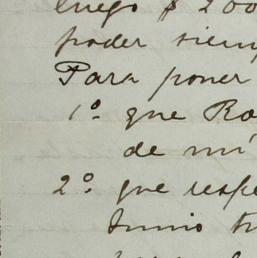 luego $ 200
poder siem
Para poner
1º que Ro
de mi
2º que respe
Junio tu